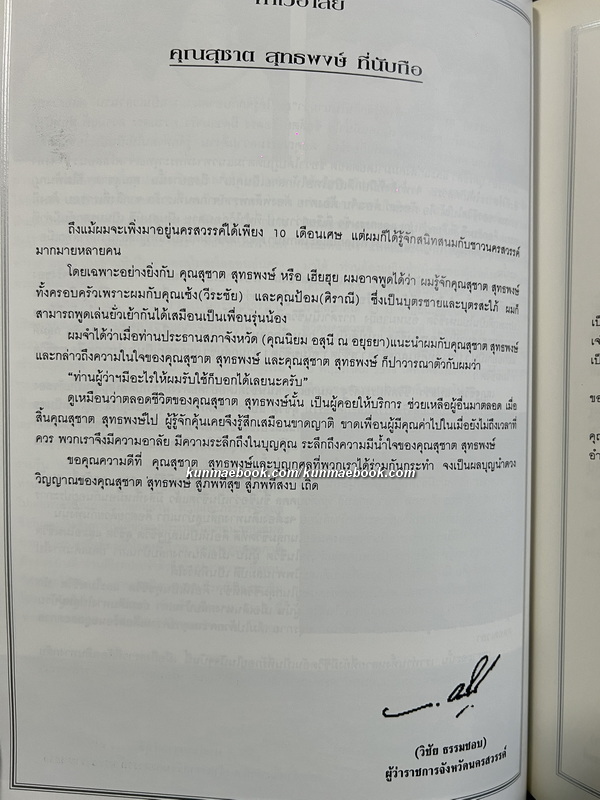 คำไว้อาลัย
คุณสุชาต สุทธพงษ์ ที่นับถือ
ถึงแม้ผมจะเพิ่งมาอยู่นครสวรรค์ได้เพียง 10 เดือนเศษ แต่ผมก็ได้รู้จักสนิทสนมกับชาวนครสวรรค์
มากมายหลายคน
โดยเฉพาะอย่างยิ่งกับ คุณสุชาต สุทธพงษ์ หรือ เฮียฮุย ผมอาจพูดได้ว่า ผมรู้จักคุณสุชาต สุทธพงษ์
ทั้งครอบครัวเพราะผมกับคุณเซ้ง(วีระชัย) และคุณป้อม(ศิราณี) ซึ่งเป็นบุตรชายและบุตรสะใภ้ ผมก็
สามารถพูดเล่นยั่วเย้ากันได้เสมือนเป็นเพื่อนรุ่นน้อง
ผมจำได้ว่าเมื่อท่านประธานสภาจังหวัด (คุณนิยม อสุนี ณ อยุธยา)แนะนำผมกับคุณสุชาต สุทธพงษ์
และกล่าวถึงความในใจของคุณสุชาต สุทธพงษ์ และคุณสุชาต สุทธพงษ์ ก็ปาวารณาตัวกับผมว่า
"ท่านผู้ว่าฯมีอะไรให้ผมรับใช้ก็บอกได้เลยนะครับ"
ดูเหมือนว่าตลอดชีวิตของคุณสุชาต สุทธพงษ์นั้น เป็นผู้คอยให้บริการ ช่วยเหลือผู้อื่นมาตลอด เมื่อ
สิ้นคุณสุชาต สุทธพงษ์ไป ผู้รู้จักคุ้นเคยจึงรู้สึกเสมือนขาดญาติ ขาดเพื่อนผู้มีคุณค่าไปในเมื่อยังไม่ถึงเวลาที่
ควร พวกเราจึงมีความอาลัย มีความระลึกถึงในบุญคุณ ระลึกถึงความมีน้ำใจของคุณสุชาต สุทธพงษ์
ขอคุณความดีที่ คุณสุชาต สุทธพงษ์และบุญกุศลที่พวกเราได้ร่วมกันกระทำ จงเป็นผลบุญนำดวง
kunmaebook.com / kunmaebook.com
วิญญาณของคุณสุชาต สุทธพงษ์ สู่ภพที่สุข สู่ภพที่สงบ เถิด
(วิชัย ธรรมชอบ)
ผู้ว่าราชการจังหวัดนครสวรรค์